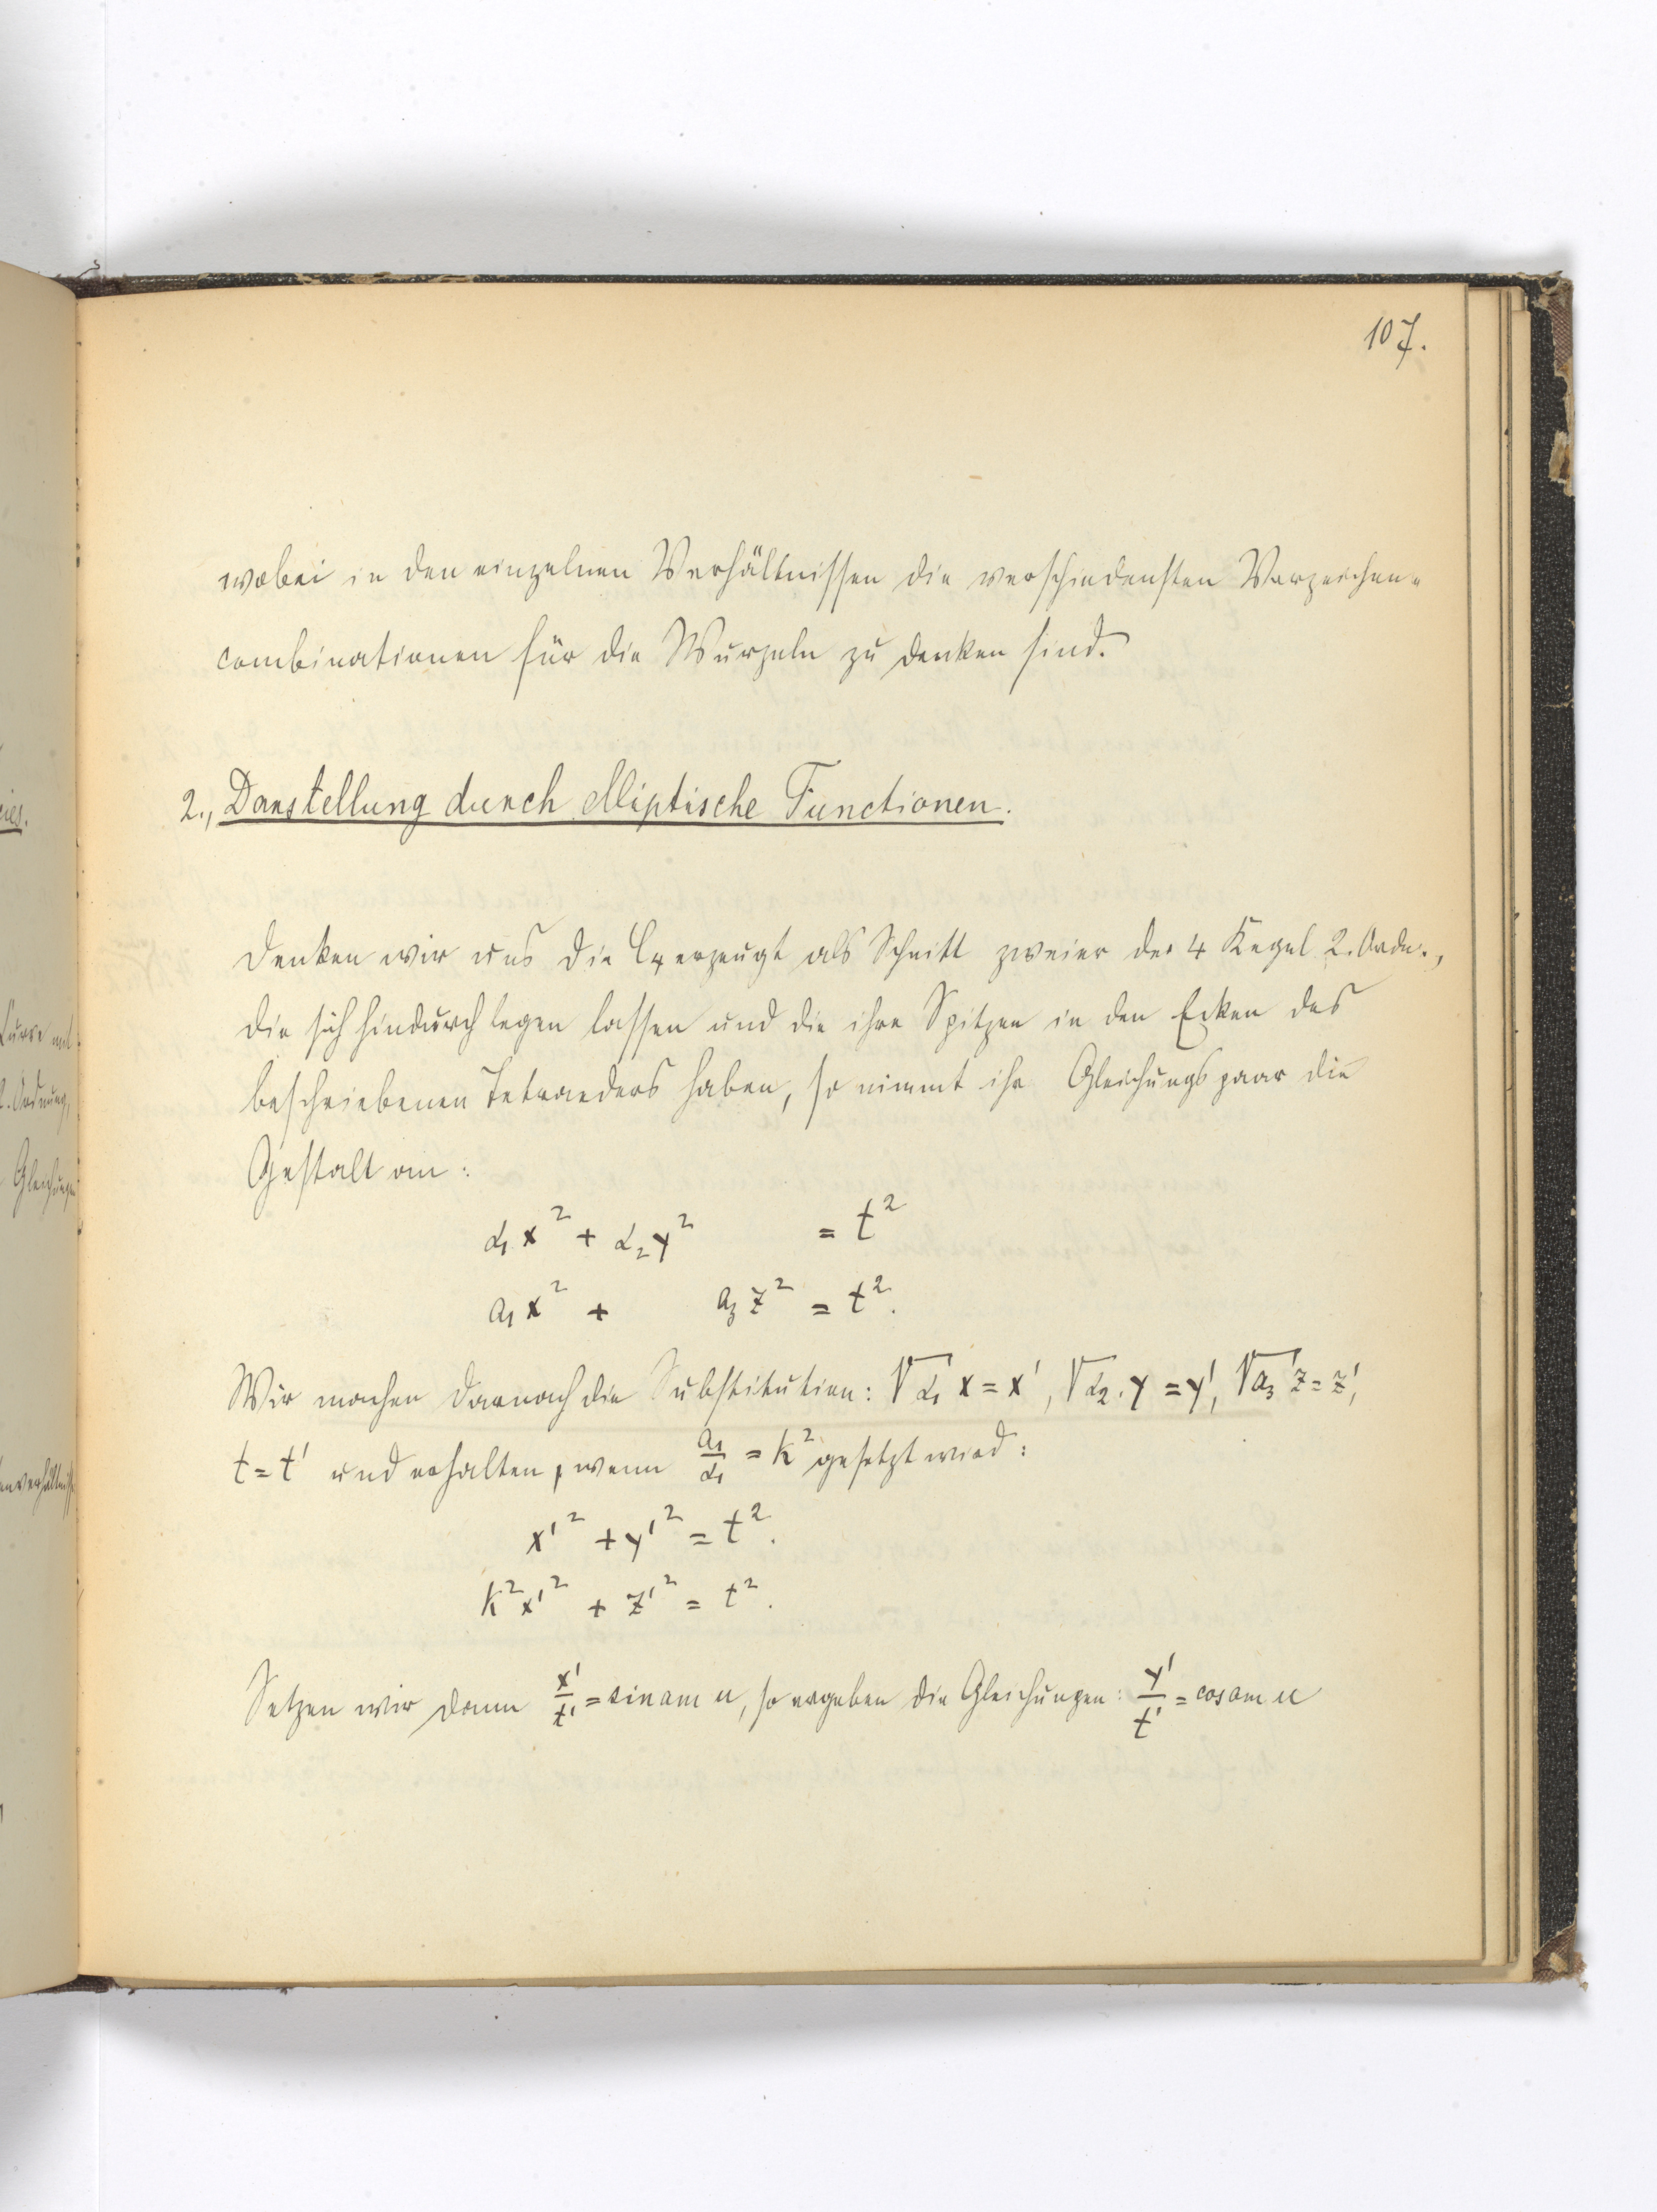 107.
wobei in den einzelnen Verhältnissen die verschiedensten Vorzeichen-
combinationen für die Wurzeln zu denken sind.
2., Darstellung durch elliptische Functionen.
Denken wir uns die C₄ erzeugt als Schnitt zweier der 4 Kegel 2. Ordn.,
die sich hindurch legen lassen und die ihre Spitzen in den Ecken des
beschriebenen Tetraeders haben, so nimmt ihr Gleichungspaar die
Gestalt an:
α₁x² + α₂y² = t²
a₁x² + a₃z² = t².
Wir machen darnach die Substitution: √α₁ x = x', √α₂ . y = y', √a₃ z = z',
t = t' und erhalten, wenn a₁/α₁ = k² gesetzt wird:
x'² + y'² = t².
k²x'² + z'² = t².
Setzen wir dann x'/t' = sin am u, so ergeben die Gleichungen: y'/t' = cos am u